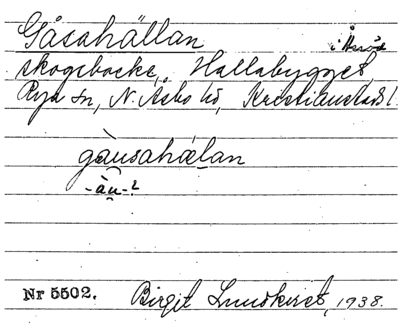 Gåsahällan
i Åsröd
skogsbacke, Hallabygget,
Rya sn, N. Åsbo hd, Kristianstads l.
gàusahæ̀lan
-àu-?
Nr 5502.
Birgit Lundkvist, 1938.